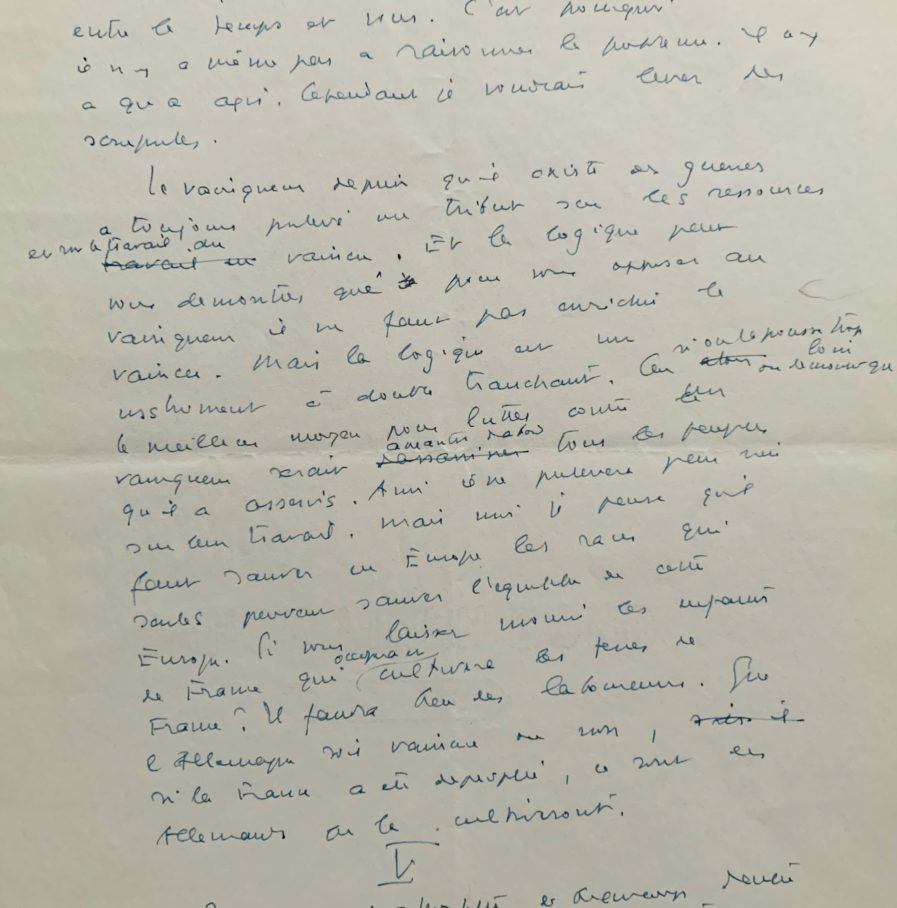 entre le temps et vous. C'est pourquoi
il n'y a même pas à raisonner le problème. Il n'y
a qu'à agir. Cependant je voudrais lever des
scrupules.
Le vainqueur depuis qu'il existe des guerres
a toujours prélevé un tribut sur les ressources
et sur le travail du
vaincu. Et la logique peut
vous démontrer que pour vous opposer au
vainqueur il ne faut pas enrichir le
vaincu. Mais la logique est un
instrument à double tranchant. Car si on la pousse trop loin
on démontre que
le meilleur moyen pour lutter contre le
vainqueur serait d'abord tous les peuples
qu'il a asservis. Ainsi il ne prélevera plus rien
sur leur travail. Mais moi je pense qu'il
faut sauver en Europe les races qui
seules peuvent sauver l'équilibre de cette
Europe. Si vous laissez mourir les enfants
de France qui cultivera les terres de
France? Il faudra bien des laboureurs. Que
l'Allemagne soit vaincue ou non,
si la France a été dépeuplée, ce sont les
Allemands qui la cultiveront.
V